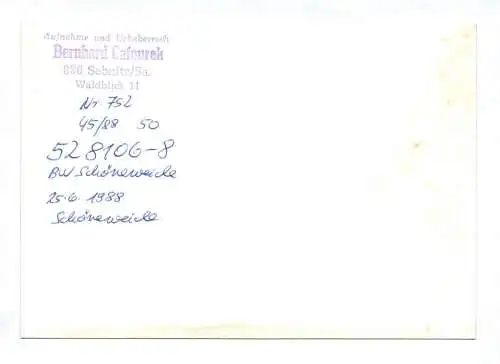 Aufnahme und Urheberrecht
Bernhard Cafourek
836 Sebnitz/Sa.
Waldblick 11
Nr. 752
45/88 50
528106-8
BW Schöneweide
25.6.1988
Schöneweide